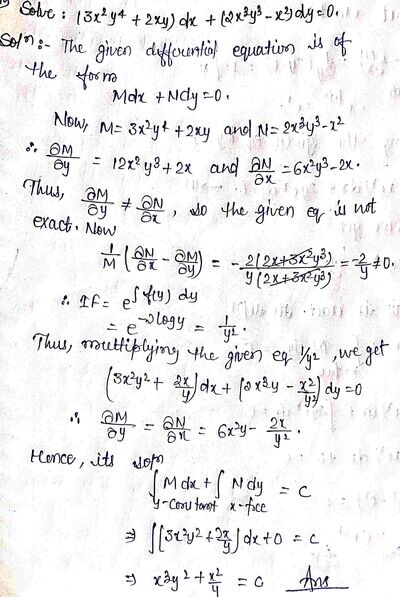 Solve : (3x²y⁴ + 2xy) dx + (2x³y³ – x²) dy = 0.
Solⁿ :- The given differential equation is of
the form
Mdx + Ndy = 0.
Now, M = 3x²y⁴ + 2xy and N = 2x³y³ – x²
∴ ∂M/∂y = 12x²y³ + 2x and ∂N/∂x = 6x²y³ – 2x.
Thus, ∂M/∂y ≠ ∂N/∂x, so the given eq is not
exact. Now
1/M (∂N/∂x – ∂M/∂y) = – 2(2x+3x²y³)/y(2x+3x²y³) = –2/y ≠ 0.
∴ IF = e^∫f(y) dy
= e^–2logy = 1/y².
Thus, multiplying the given eq 1/y², we get
(3x²y² + 2x/y) dx + (2x³y – x²/y²) dy = 0
∴ ∂M/∂y = ∂N/∂x = 6x²y – 2x/y².
Hence, its solⁿ
∫ Mdx + ∫ Ndy = c
y-constant x-free
⇒ ∫(3x²y² + 2x/y) dx + 0 = c.
⇒ x³y² + x²/y = c Ans